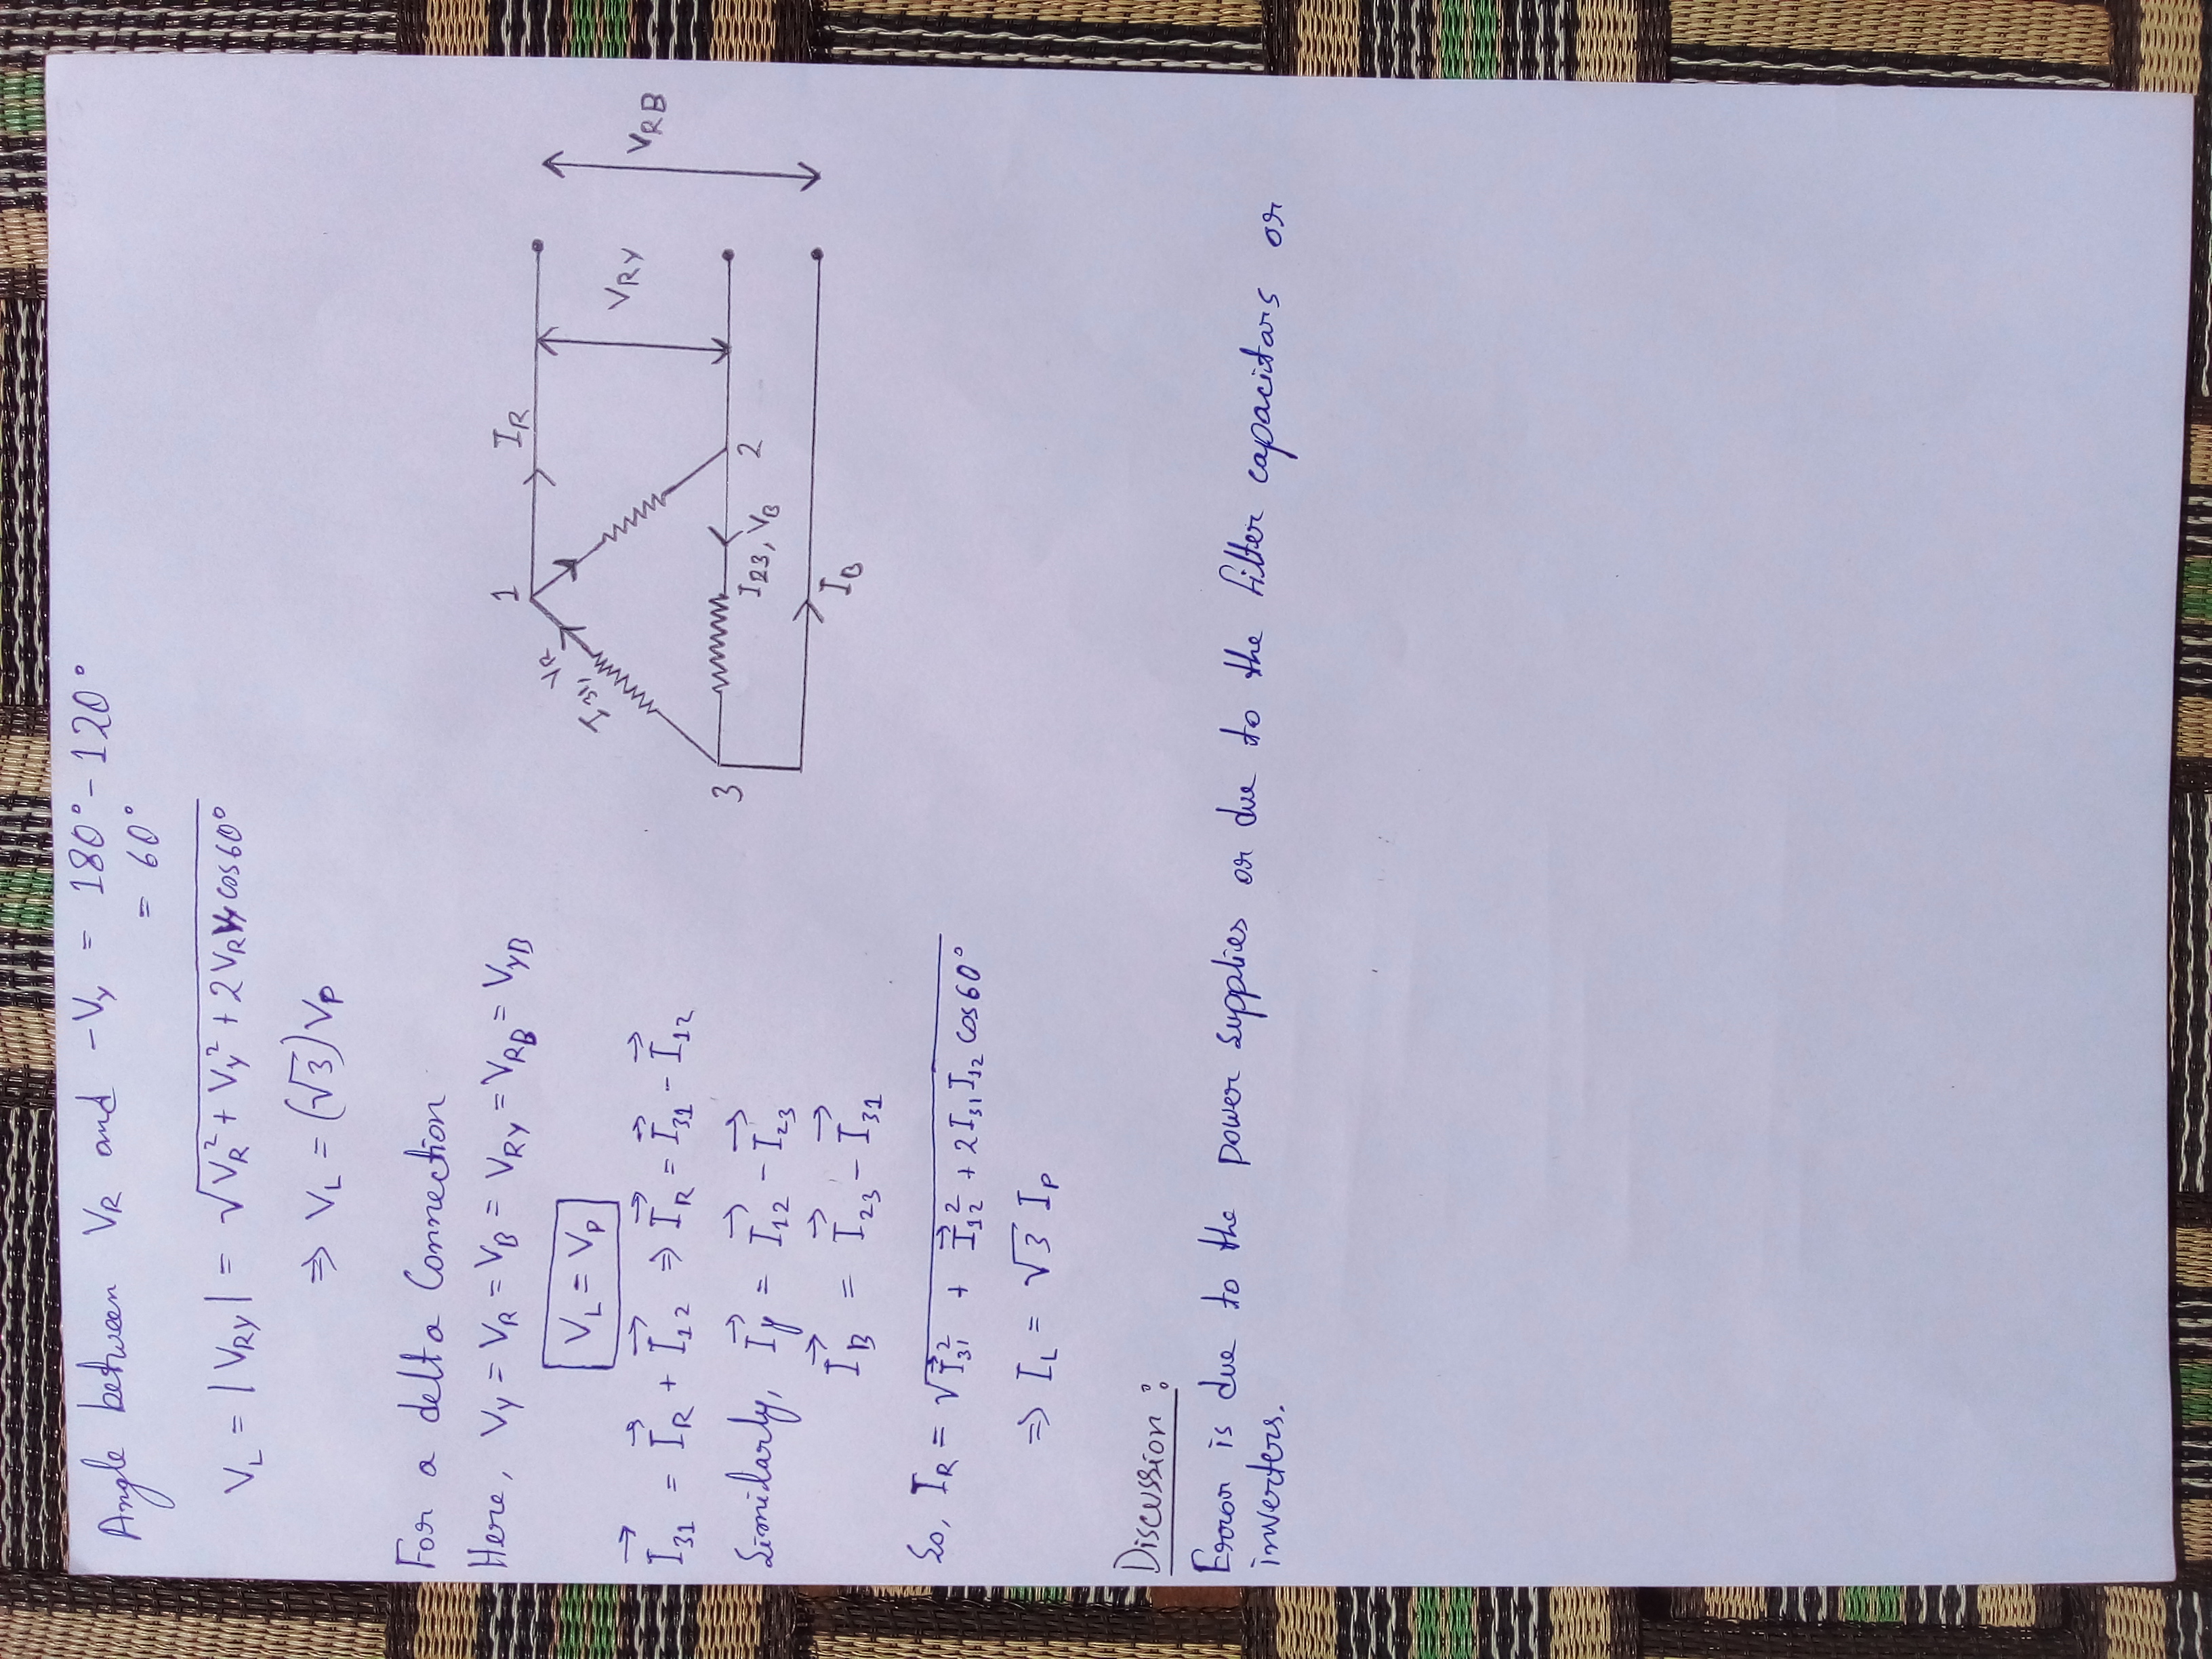 Angle between V_R and -V_y = 180° - 120°
= 60°
V_L = |V_RY| = √(V_R² + V_y² + 2V_R V_y cos60°)
⇒ V_L = (√3) V_P
For a delta Connection
Here, V_Y = V_R = V_B = V_RY = V_RB = V_YB
V_L = V_P
I⃗_31 = I⃗_R + I⃗_12 ⇒ I⃗_R = I⃗_31 - I⃗_12
Similarly, I⃗_y = I⃗_12 - I⃗_23
I⃗_B = I⃗_23 - I⃗_31
So, I_R = √(I⃗_31² + I⃗_12² + 2I_31 I_12 cos60°)
⇒ I_L = √3 I_P
1
I_R
I_31, V_R
V_RY
V_RB
3
I_23, V_B
2
I_B
Discussion :
Error is due to the power supplies or due to the filter capacitars or
inverters.